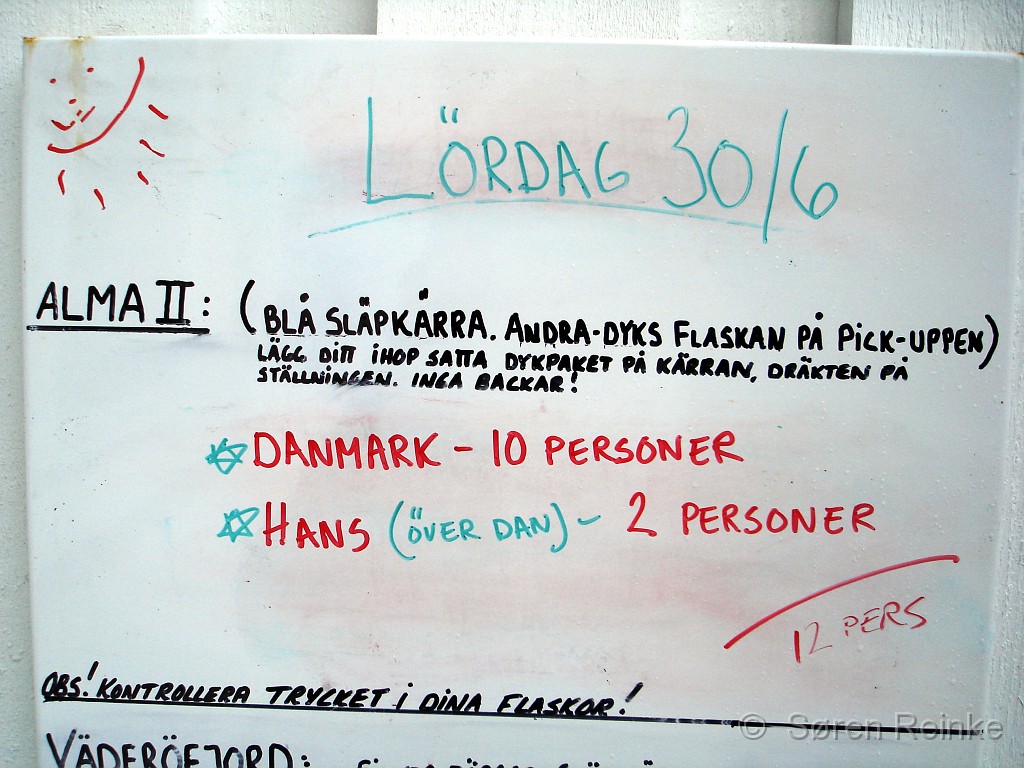 LÖRDAG 30/6
ALMA II: (BLÅ SLÄPKÄRRA. ANDRA-DYKS FLASKAN PÅ PICK-UPPEN)
LÄGG DITT IHOP SATTA DYKPAKET PÅ KÄRRAN, DRÄKTEN PÅ
STÄLLNINGEN. INGA BACKAR!
DANMARK - 10 PERSONER
HANS (ÖVER DAN) - 2 PERSONER
12 PERS
OBS! KONTROLLERA TRYCKET I DINA FLASKOR!
© Søren Reinke
VÄDERÖFJORD: